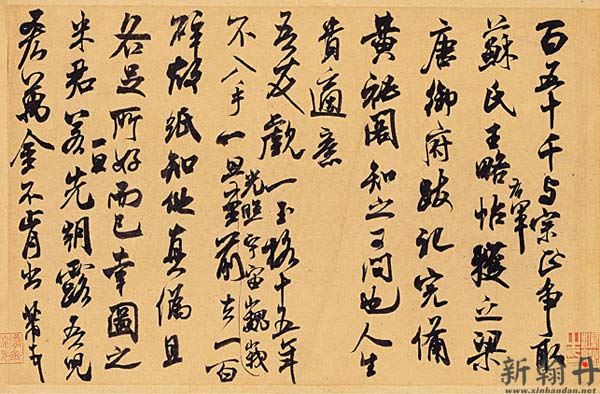 百五十千与宗正爭取
蘇氏王略帖右軍獲之梁
唐御府跋記完備
黃祕閣知之可問也人生
貴適意
吾友覷一玉格十五年
不入手一旦光照宇宙巍峩至前去一百
碎故紙知他真偽且
各足所好而已幸圖之
米君若一旦先朝露吾兒
吝萬金不肯出芾頓首
新翰丹
www.xinhandan.net